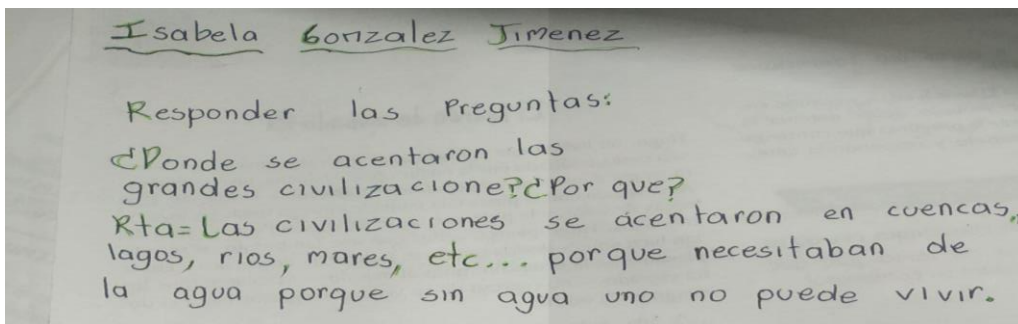 Isabela Gonzalez Jimenez
Responder las Preguntas:
¿Donde se acentaron las
grandes civilizacione?¿Por que?
Rta= Las civilizaciones se acentaron en cuencas,
lagos, rios, mares, etc... porque necesitaban de
la agua porque sin agua uno no puede vivir.